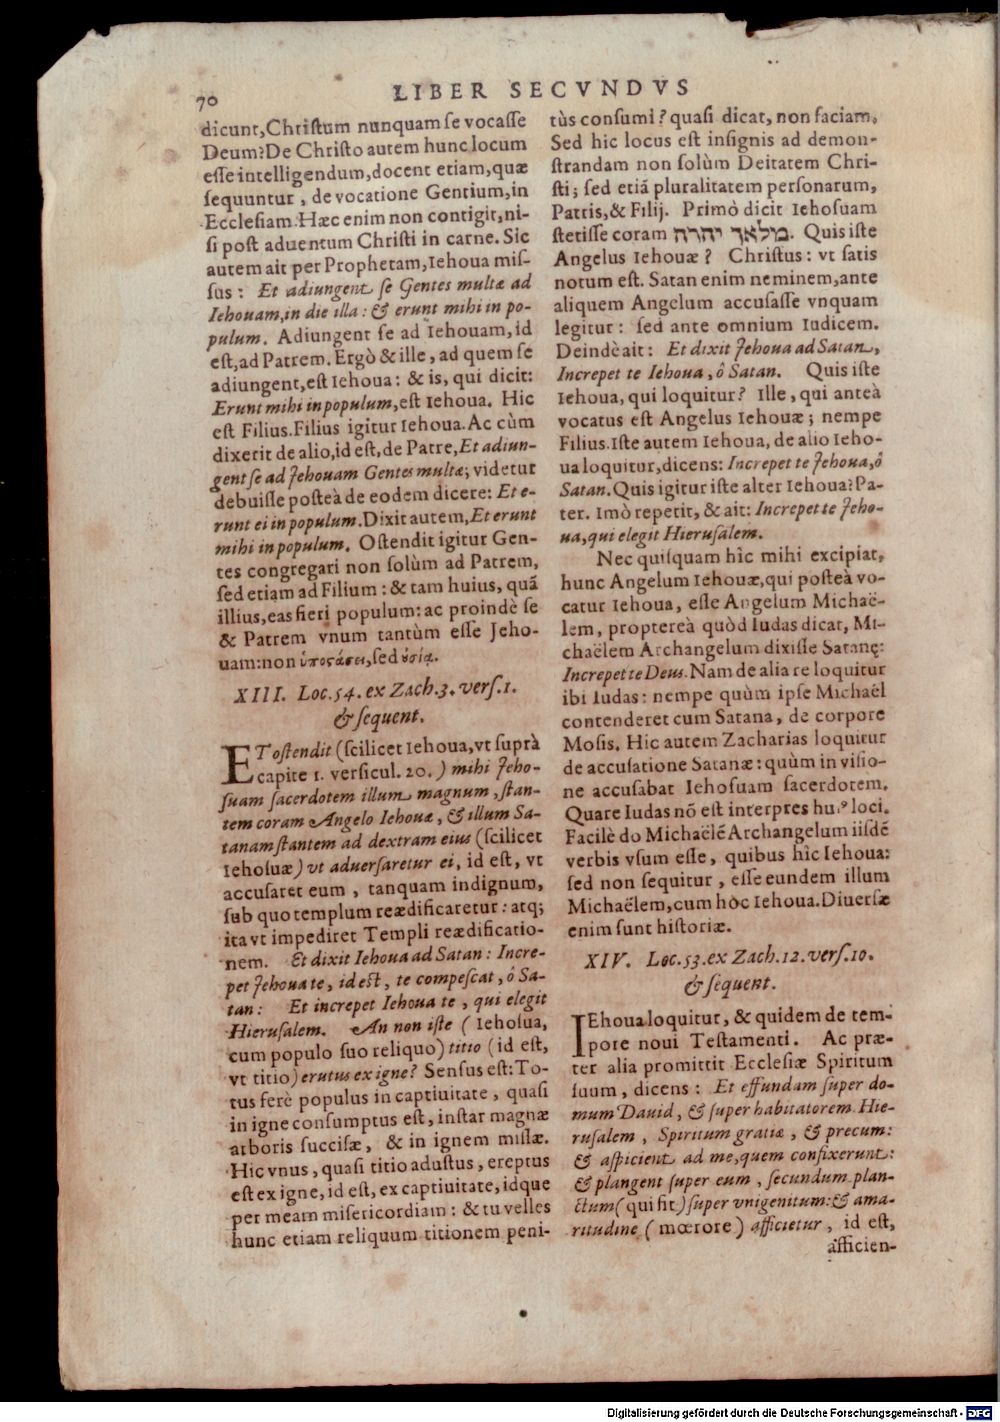 70
LIBER SECVNDVS
dicunt, Christum nunquam se vocasse
Deum? De Christo autem hunc locum
esse intelligendum, docent etiam, quæ
sequuntur, de vocatione Gentium, in
Ecclesiam. Hæc enim non contigit, ni-
si post aduentum Christi in carne. Sic
autem ait per Prophetam, Iehoua mis-
sus: Et adiungent se Gentes multæ ad
Iehouam, in die illa: & erunt mihi in po-
pulum. Adiungent se ad Iehouam, id
est, ad Patrem. Ergò & ille, ad quem se
adiungent, est Iehoua: & is, qui dicit:
Erunt mihi in populum, est Iehoua. Hic
est Filius. Filius igitur Iehoua. Ac cùm
dixerit de alio, id est, de Patre, Et adiun-
gent se ad Jehouam Gentes multæ; videtur
debuisse posteà de eodem dicere: Et e-
runt ei in populum. Dixit autem, Et erunt
mihi in populum. Ostendit igitur Gen-
tes congregari non solùm ad Patrem,
sed etiam ad Filium: & tam huius, quã
illius, eas fieri populum: ac proindè se
& Patrem vnum tantùm esse Jeho-
uam: non ὑποςάσει, sed ὀσίᾳ.
XIII. Loc. 54. ex Zach. 3. vers. 1.
& sequent.
ET ostendit (scilicet Iehoua, vt suprà
capite 1. versicul. 20.) mihi Jeho-
suam sacerdotem illum magnum, stan-
tem coram Angelo Iehouæ, & illum Sa-
tanam stantem ad dextram eius (scilicet
Iehosuæ) vt aduersaretur ei, id est, vt
accusaret eum, tanquam indignum,
sub quo templum reædificaretur: atq;
ita vt impediret Templi reædificatio-
nem. Et dixit Iehoua ad Satan: Incre-
pet Jehoua te, id est, te compescat, ô Sa-
tan: Et increpet Iehoua te, qui elegit
Hierusalem. An non iste (Iehosua,
cum populo suo reliquo) titio (id est,
vt titio) erutus ex igne? Sensus est: To-
tus ferè populus in captiuitate, quasi
in igne consumptus est, instar magnæ
arboris succisæ, & in ignem missæ.
Hic vnus, quasi titio adustus, ereptus
est ex igne, id est, ex captiuitate, idque
per meam misericordiam: & tu velles
hunc etiam reliquum titionem peni-
tùs consumi? quasi dicat, non faciam.
Sed hic locus est insignis ad demon-
strandam non solùm Deitatem Chri-
sti; sed etiã pluralitatem personarum,
Patris, & Filij. Primò dicit Iehosuam
stetisse coram מלאך יהוה. Quis iste
Angelus Iehouæ? Christus: vt satis
notum est. Satan enim neminem, ante
aliquem Angelum accusasse vnquam
legitur: sed ante omnium Iudicem.
Deindè ait: Et dixit Jehoua ad Satan,
Increpet te Iehoua, ô Satan. Quis iste
Iehoua, qui loquitur? Ille, qui anteà
vocatus est Angelus Iehouæ; nempe
Filius. Iste autem Iehoua, de alio Ieho-
ua loquitur, dicens: Increpet te Jehoua, ô
Satan. Quis igitur iste alter Iehoua? Pa-
ter. Imò repetit, & ait: Increpet te Jeho-
ua, qui elegit Hierusalem.
Nec quisquam hîc mihi excipiat,
hunc Angelum Iehouæ, qui posteà vo-
catur Iehoua, esse Angelum Michaë-
lem, proptereà quòd Iudas dicat, Mi-
chaëlem Archangelum dixisse Satanę:
Increpet te Deus. Nam de alia re loquitur
ibi Iudas: nempe quùm ipse Michaël
contenderet cum Satana, de corpore
Mosis. Hic autem Zacharias loquitur
de accusatione Satanæ: quùm in visio-
ne accusabat Iehosuam sacerdotem.
Quare Iudas nõ est interpres huiꝰ loci.
Facilè do Michaëlẽ Archangelum iisdẽ
verbis vsum esse, quibus hîc Iehoua:
sed non sequitur, esse eundem illum
Michaëlem, cum hôc Iehoua. Diuersæ
enim sunt historiæ.
XIV. Loc. 53. ex Zach. 12. vers. 10.
& sequent.
IEhoua loquitur, & quidem de tem-
pore noui Testamenti. Ac præ-
ter alia promittit Ecclesiæ Spiritum
suum, dicens: Et effundam super do-
mum Dauid, & super habitatorem Hie-
rusalem, Spiritum gratiæ, & precum:
& aspicient ad me, quem confixerunt:
& plangent super eum, secundum plan-
ctum (qui fit) super vnigenitum: & ama-
ritudine (mœrore) afficietur, id est,
afficien-
Digitalisierung gefördert durch die Deutsche Forschungsgemeinschaft - DFG